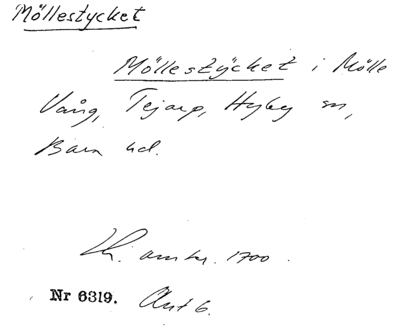 Möllestycket
Möllestÿcket i Mölle
Vång, Tejarp, Hyby sn,
Bara hd.
amtr. 1700.
Nr 6319. Akt 6.